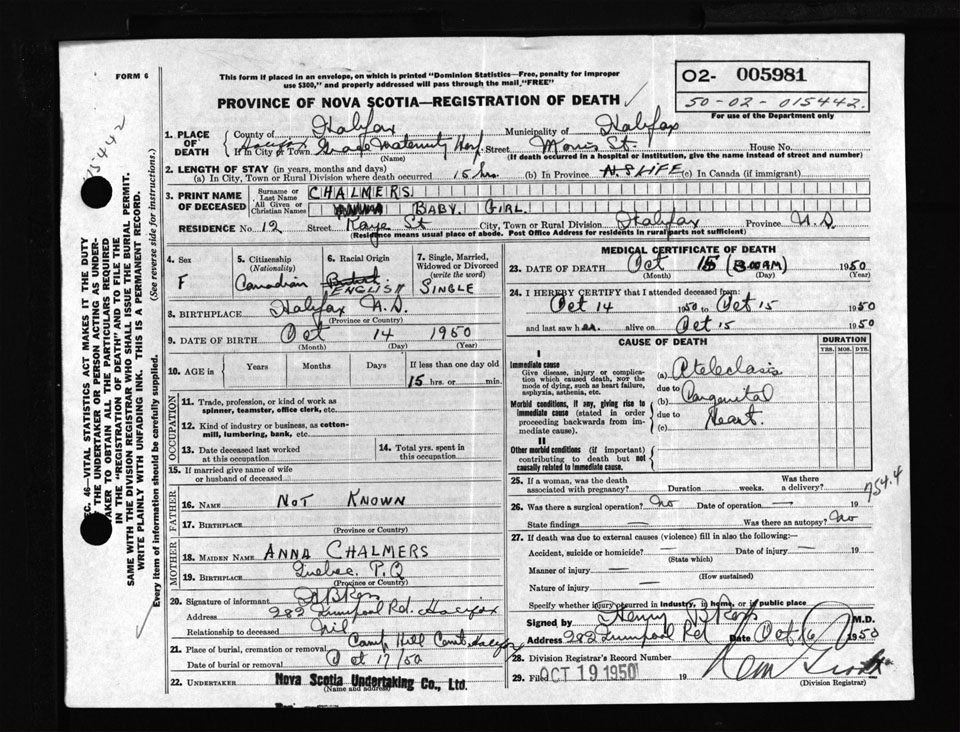 FORM 6
This form if placed in an envelope, on which is printed "Dominion Statistics—Free, penalty for improper
use $300," and properly addressed will pass through the mail "FREE"
O2- 005981
50-02-015442.
For use of the Department only
PROVINCE OF NOVA SCOTIA—REGISTRATION OF DEATH
1. PLACE OF DEATH
County of Halifax Municipality of Halifax
If in City or Town Halifax Grace Maternity Hosp. Street Morris St. House No.
(Name) (If death occurred in a hospital or institution, give the name instead of street and number)
2. LENGTH OF STAY (in years, months and days)
(a) In City, Town or Rural Division where death occurred 15 hrs. (b) In Province N.S LIFE (c) In Canada (if immigrant)
3. PRINT NAME OF DECEASED
Surname or Last Name CHALMERS
All Given or Christian Names BABY GIRL
RESIDENCE No. 12 Street Kaye St City, Town or Rural Division Halifax Province N.S
(Residence means usual place of abode. Post Office Address for residents in rural parts not sufficient)
4. Sex
F
5. Citizenship
(Nationality)
Canadian
6. Racial Origin
British
ENGLISH
7. Single, Married,
Widowed or Divorced
(write the word)
SINGLE
8. BIRTHPLACE Halifax N.S.
(Province or Country)
9. DATE OF BIRTH Oct 14 1950
(Month) (Day) (Year)
10. AGE in Years Months Days If less than one day old
15 hrs. or min.
OCCUPATION
11. Trade, profession, or kind of work as
spinner, teamster, office clerk, etc.
12. Kind of industry or business, as cotton-
mill, lumbering, bank, etc.
13. Date deceased last worked
at this occupation
14. Total yrs. spent in
this occupation
15. If married give name of wife
or husband of deceased
FATHER
16. NAME NOT KNOWN
17. BIRTHPLACE
(Province or Country)
MOTHER
18. MAIDEN NAME ANNA CHALMERS
19. BIRTHPLACE Quebec P.Q
(Province or Country)
20. Signature of informant
Address 282 Quinpool Rd. Halifax
Relationship to deceased Nil
21. Place of burial, cremation or removal Camp Hill Cem Halifax
Date of burial or removal Oct 17/50
22. UNDERTAKER Nova Scotia Undertaking Co., Ltd.
(Name and address)
MEDICAL CERTIFICATE OF DEATH
23. DATE OF DEATH Oct 15 1950
(Month) (Day) (Year)
24. I HEREBY CERTIFY that I attended deceased from:
Oct 14 1950 to Oct 15 1950
and last saw her alive on Oct 15 1950
CAUSE OF DEATH
DURATION
YRS. MOS. DYS.
I
Immediate cause
Give disease, injury or complica-
tion which caused death, not the
mode of dying, such as heart failure,
asphyxia, asthenia, etc.
(a) Atelectasis
due to
Morbid conditions, if any, giving rise to
immediate cause (stated in order
proceeding backwards from im-
mediate cause).
(b) Congenital
due to
(c) Heart.
II
Other morbid conditions (if important)
contributing to death but not
causally related to immediate cause.
25. If a woman, was the death
associated with pregnancy? Duration weeks. Was there
a delivery?
754.4
26. Was there a surgical operation? No Date of operation — 19
State findings — Was there an autopsy? No
27. If death was due to external causes (violence) fill in also the following:—
Accident, suicide or homicide? — Date of injury — 19
(State which)
Manner of injury —
(How sustained)
Nature of injury —
Specify whether injury occurred in industry, in home, or in public place
Signed by Henry B Ross M.D.
Address 282 Quinpool Rd Date Oct 16 1950
28. Division Registrar's Record Number
29. Filed OCT 19 1950 19
(Division Registrar)
SEC. 46—VITAL STATISTICS ACT MAKES IT THE DUTY
THE UNDERTAKER OR PERSON ACTING AS UNDER-
TAKER TO OBTAIN ALL THE PARTICULARS REQUIRED
IN THE "REGISTRATION OF DEATH" AND TO FILE THE
SAME WITH THE DIVISION REGISTRAR WHO SHALL ISSUE THE BURIAL PERMIT.
WRITE PLAINLY WITH UNFADING INK. THIS IS A PERMANENT RECORD.
Every item of information should be carefully supplied. (See reverse side for instructions.)